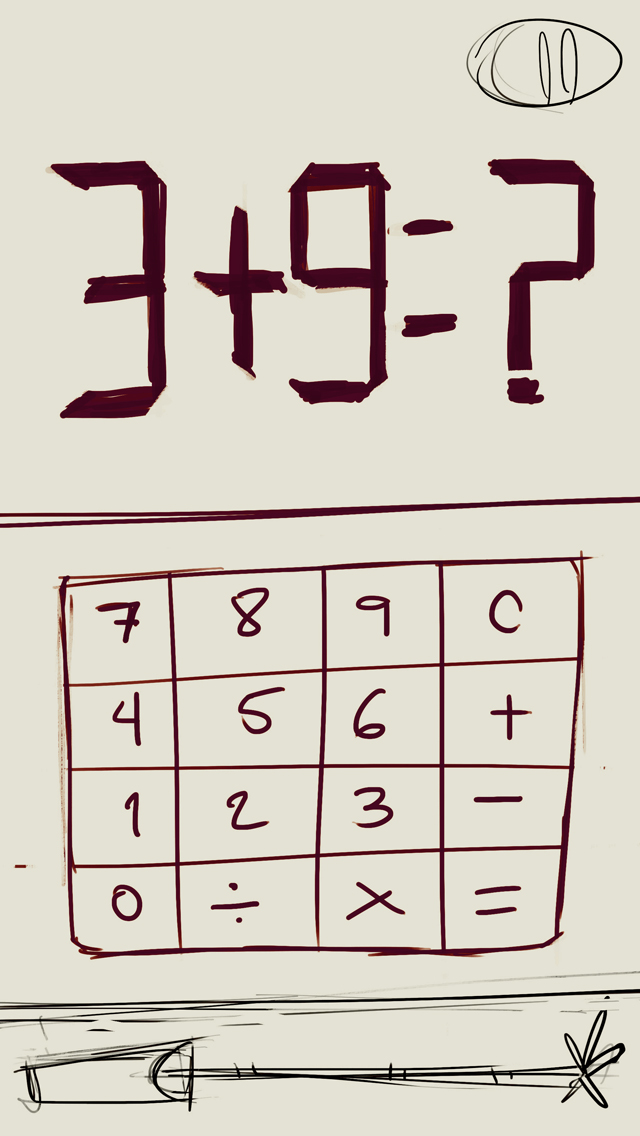 3+9=?
7 8 9 C
4 5 6 +
1 2 3 −
0 ÷ × =